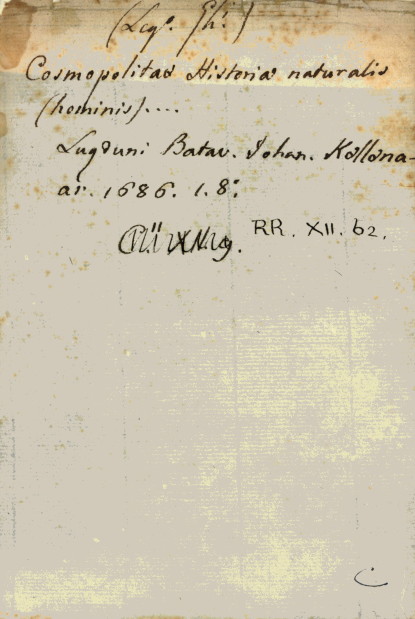 Cosmopolitae Historia naturalis
(hominis)....
Lugduni Batav. Johan. Kellena-
ar. 1686. 1. 8:
RR. XII. 62.
C